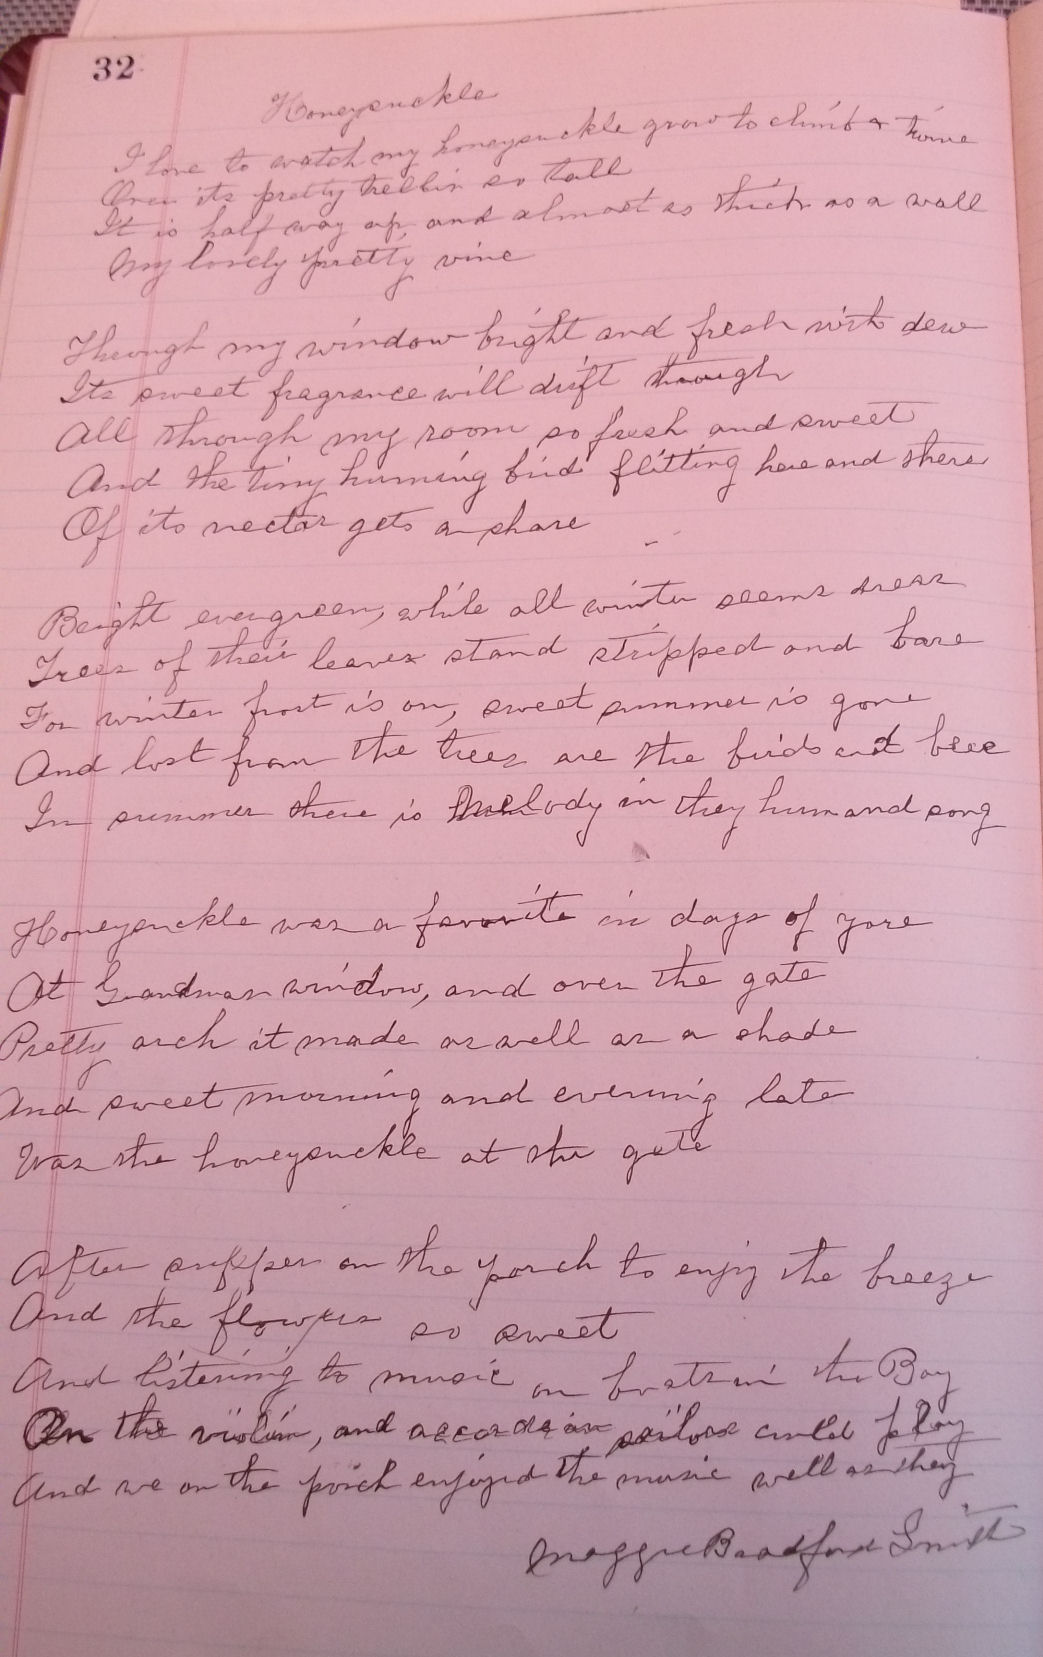 32
Honeysuckle
I love to watch my honeysuckle grow to climb & twine
Over its pretty trellis so tall
It is half way up, and almost as thick as a wall
My lovely pretty vine
Through my window bright and fresh with dew
Its sweet fragrance will drift through
All through my room so fresh and sweet
And the tiny huming bird flitting here and there
Of its nectar gets a share
Bright evergreen, while all winter seems drear
Trees of their leaves stand stripped and bare
For winter frost is on, sweet summer is gone
And lost from the trees are the birds and bees
In summer there is Melody in they hum and song
Honeysuckle was a favorite in days of yore
At Grandmas window, and over the gate
Pretty arch it made as well as a shade
And sweet morning and evening late
Was the honeysuckle at the gate
After supper on the porch to enjoy the breeze
And the flowers so sweet
And listening to music on boats in the Bay
On the violin, and accordeian sailors could play
And we on the porch enjoyed the music well as they
Maggie Bradford Smith